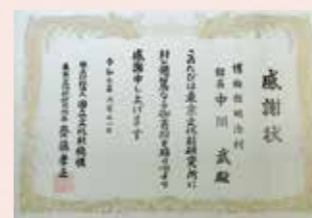 感謝状
博物館明治村
館長 中川 武 殿
このたびは東京文化財研究所に
対し
感謝申し上げます
独立行政法人 国立文化財機構
東京文化財研究所長 齊藤孝正